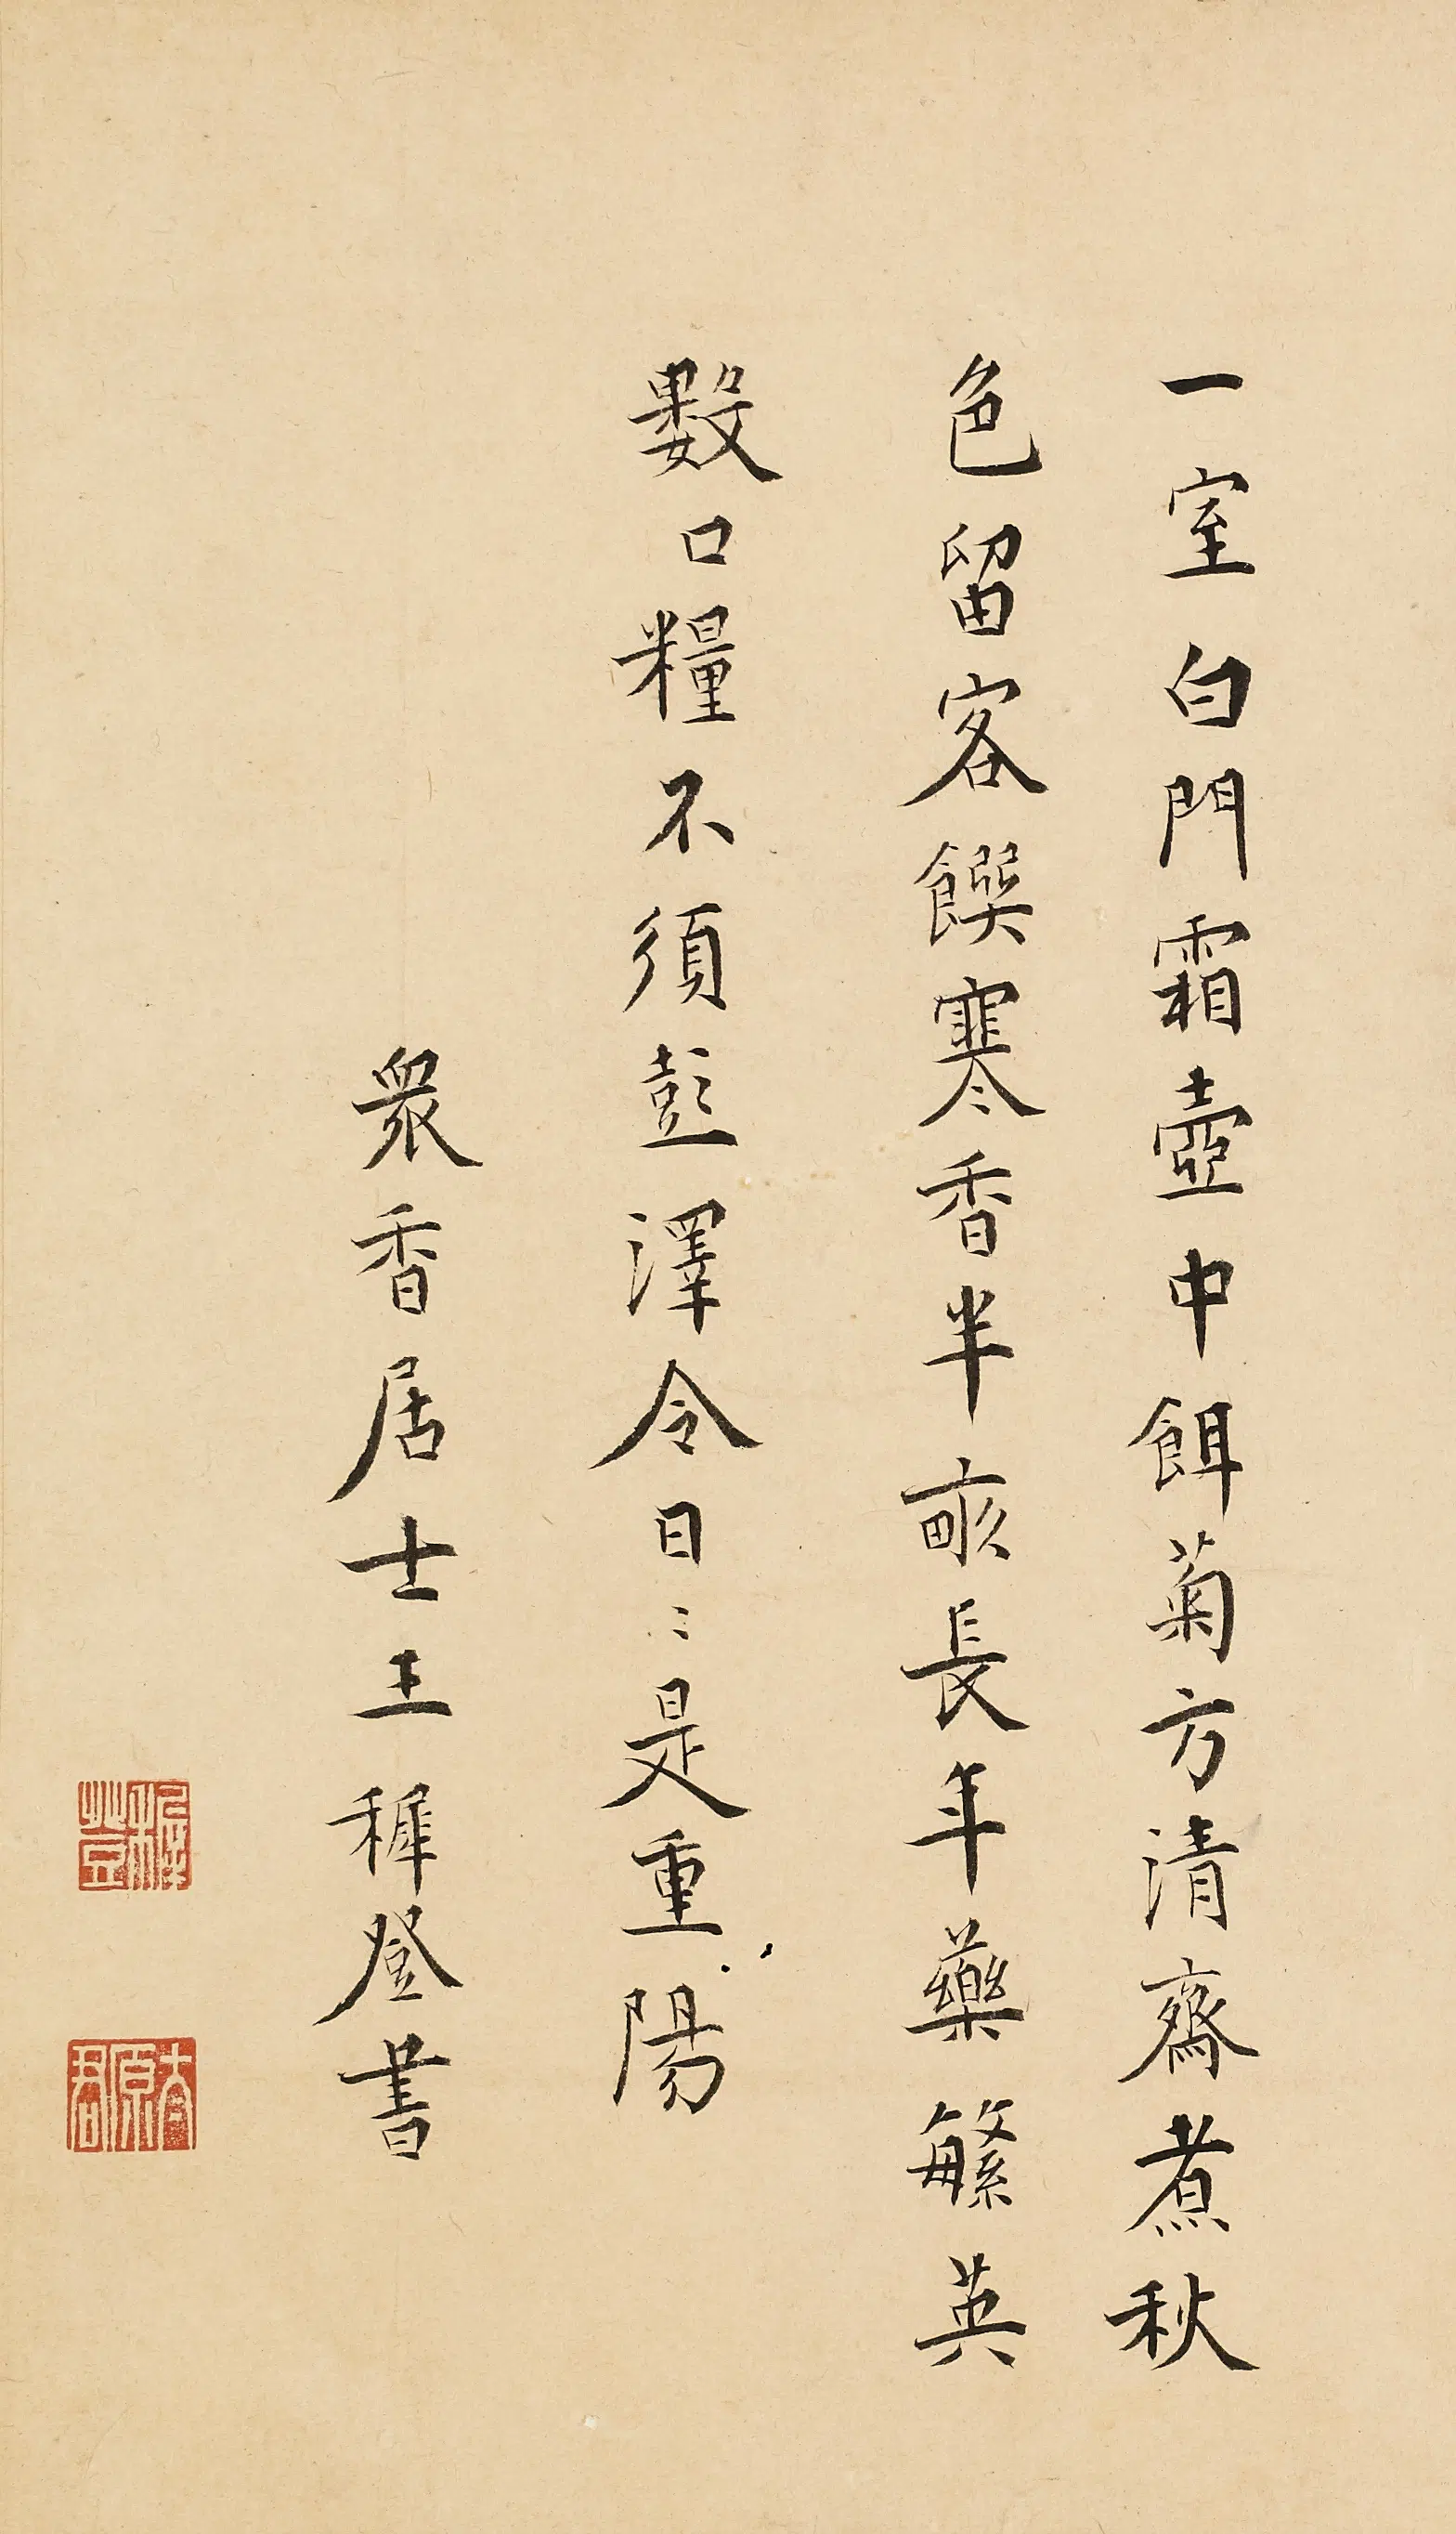 一室白門霜壺中餌菊方清齋煮秋
色留客饌寒香半畝長年藥繁英
數口糧不須彭澤令日〻是重陽
衆香居士王穉登書
穉登
太原君